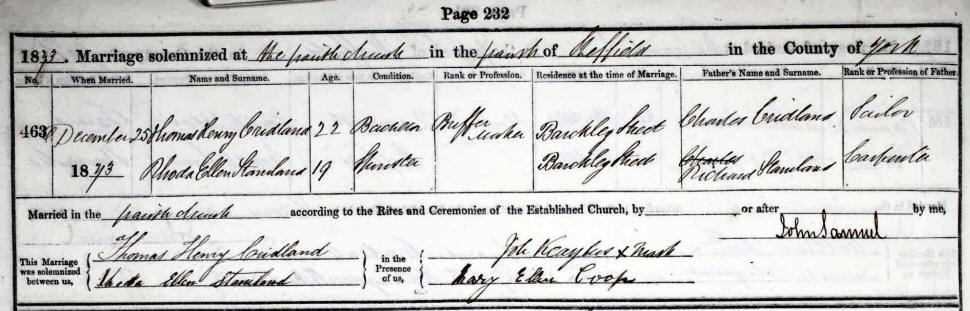 Page 232
1873. Marriage solemnized at the parish church in the parish of Sheffield in the County of York
No. When Married. Name and Surname. Age. Condition. Rank or Profession. Residence at the time of Marriage. Father's Name and Surname. Rank or Profession of Father.
463 December 25 Thomas Henry Cridland 22 Bachelor Buffer Maker Barckley Street Charles Cridland Tailor
1873 Rhoda Ellen Staniland 19 Spinster Barckley Street Charles Richard Staniland Carpenter
Married in the parish church according to the Rites and Ceremonies of the Established Church, by or after by me,
John Samuel
This Marriage was solemnized between us, Thomas Henry Cridland in the Presence of us, Job mark
Rhoda Ellen Staniland Mary Ellen Coop